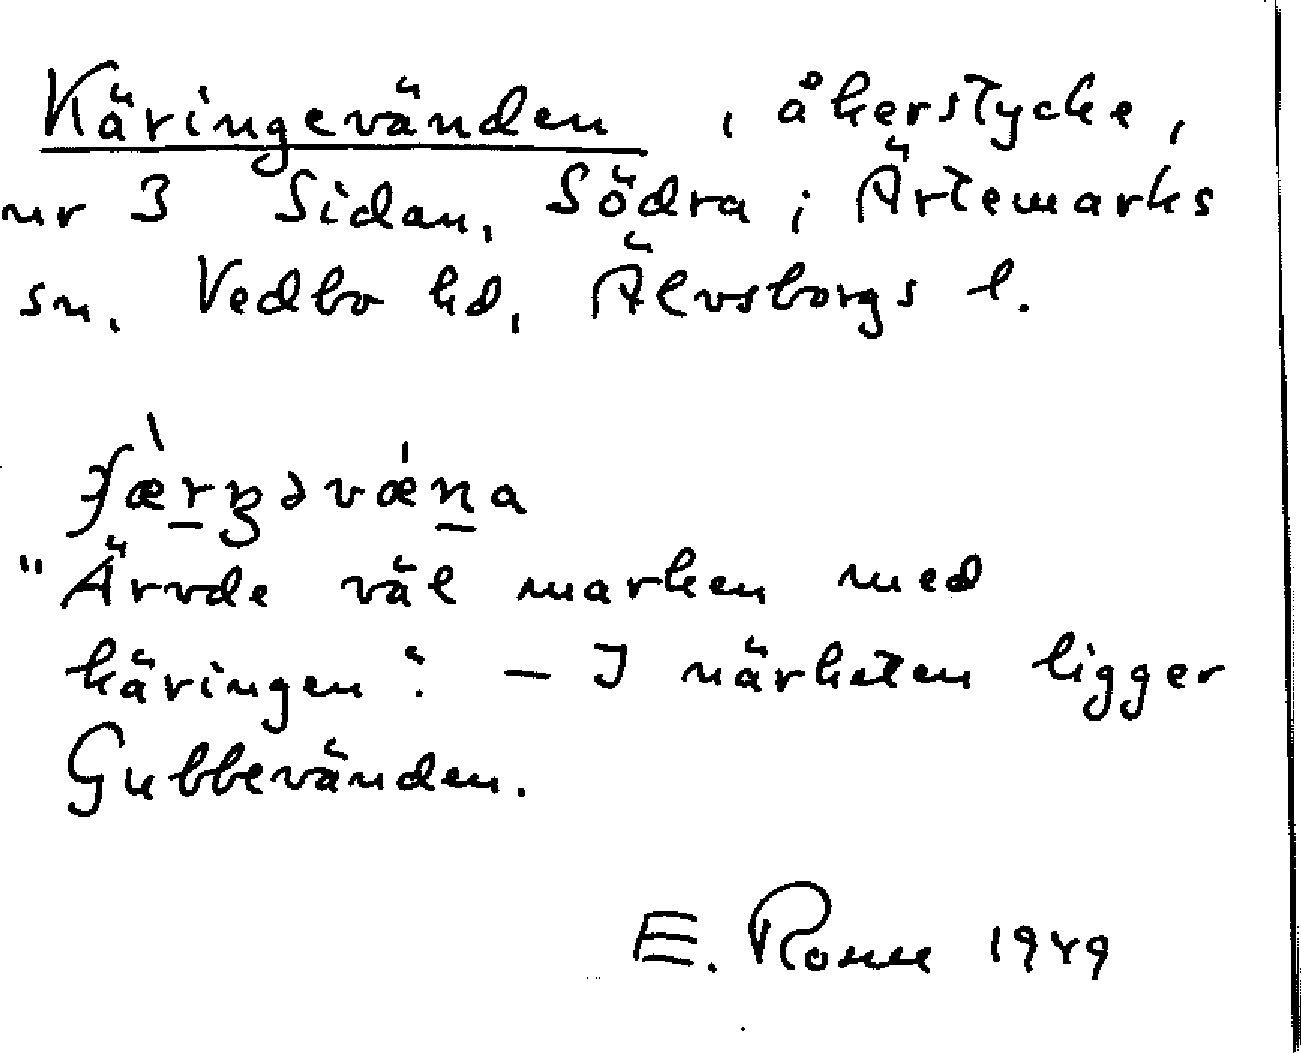 Käringevänden, åkerstycke,
nr 3 Sidan, Södra; Ärtemarks
sn. Vedbo hd, Älvsborgs l.
"Ärvde väl marken med
käringen". — I närheten ligger
Gubbevänden.
E. Ronn 1949